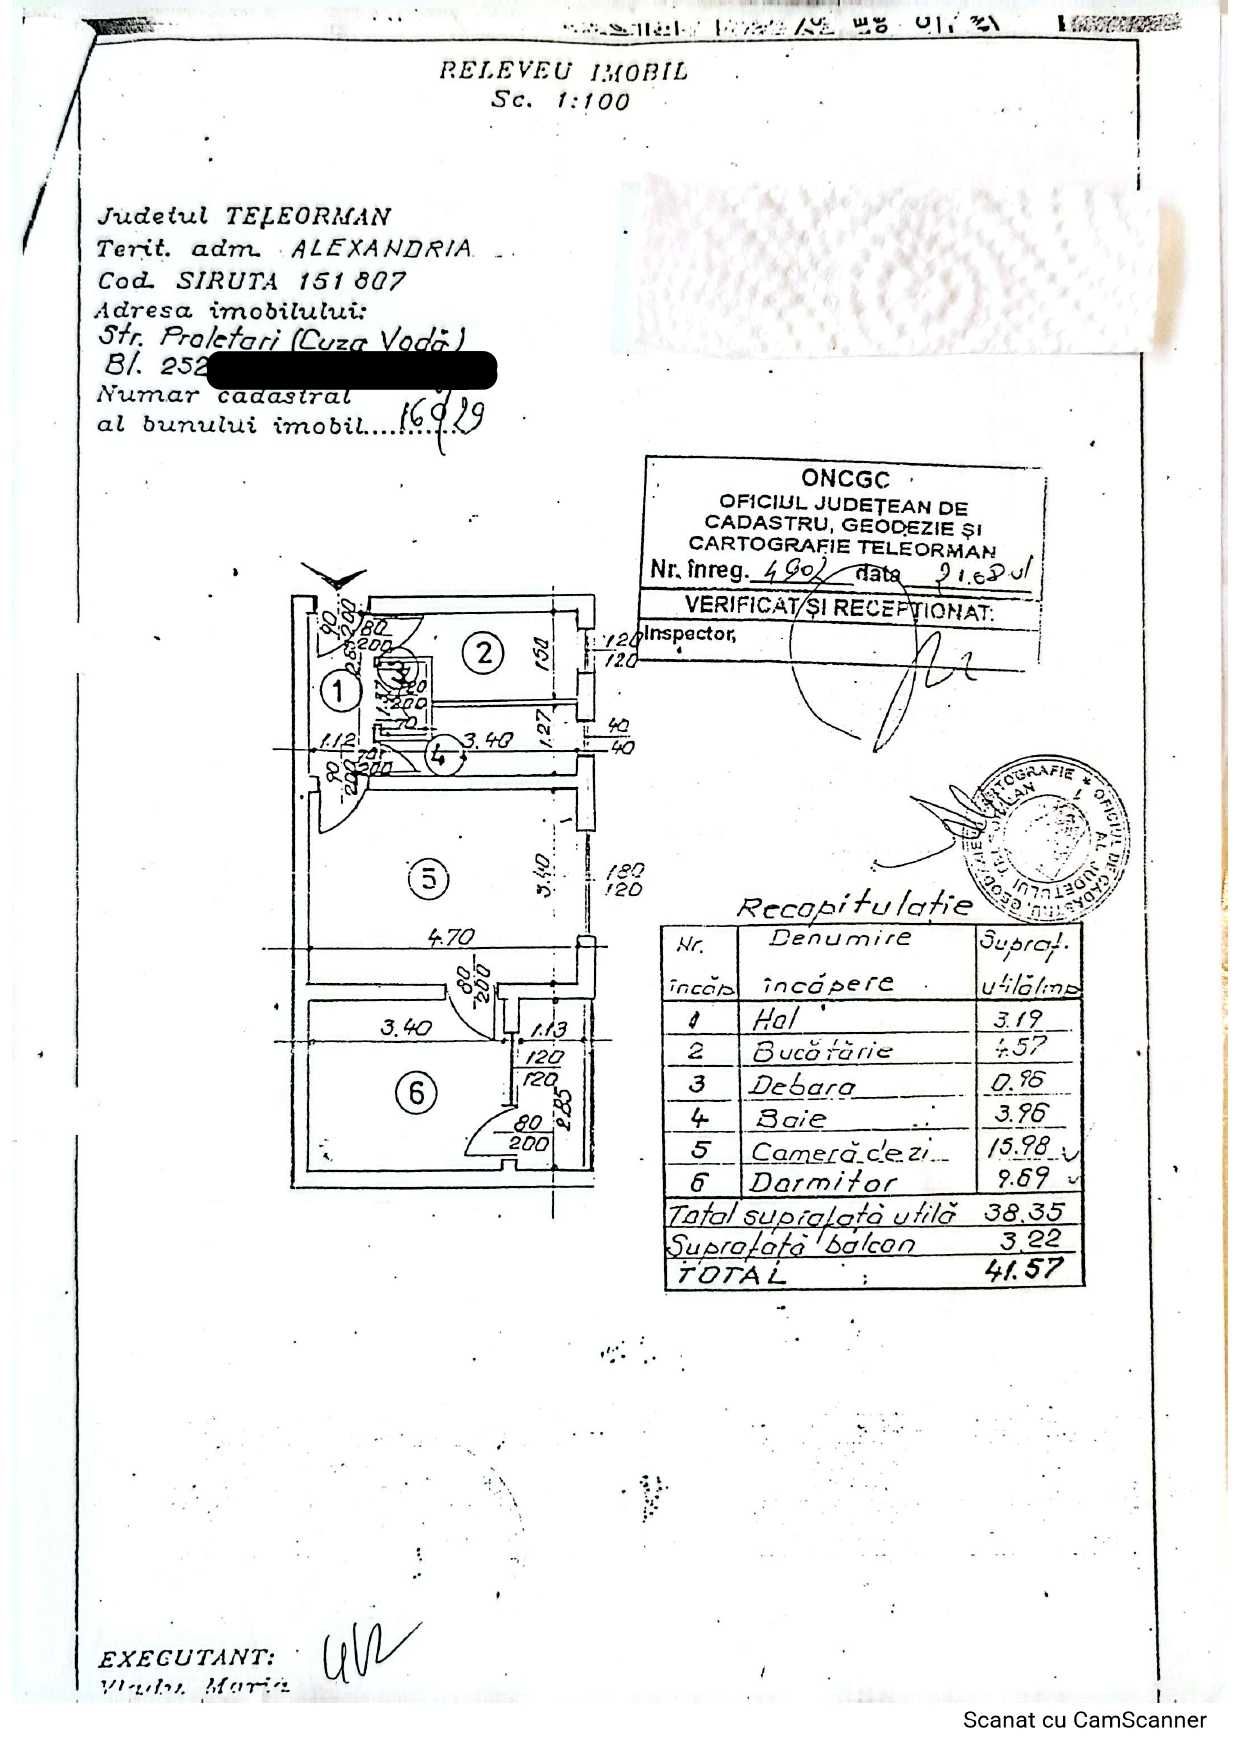 RELEVEU IMOBIL
Sc. 1:100
Judetul TELEORMAN
Terit. adm. ALEXANDRIA
Cod. SIRUTA 151 807
Adresa imobilului:
Str. Proletari (Cuza Vodă)
Bl. 252
Numar cadastral
al bunului imobil............
ONCGC
OFICIUL JUDEŢEAN DE
CADASTRU, GEODEZIE ŞI
CARTOGRAFIE TELEORMAN
Nr. înreg. 4902 data
VERIFICAT ŞI RECEPŢIONAT:
Inspector,
90
200
80
200
2
150
120
120
1
3
200
1.27
40
40
1.12
3.40
4
90
200
70
200
5
3.40
180
120
4.70
80
200
3.40
1.13
120
120
6
2.85
80
200
Recapitulatie
Nr. încăp Denumire încăpere Supraf. utilă/mp
1 Hol 3.19
2 Bucătărie 4.57
3 Debara 0.96
4 Baie 3.96
5 Cameră de zi 15.98
6 Dormitor 9.69
Total suprafată utilă 38.35
Suprafată balcon 3.22
TOTAL : 41.57
EXECUTANT:
Maria
Scanat cu CamScanner